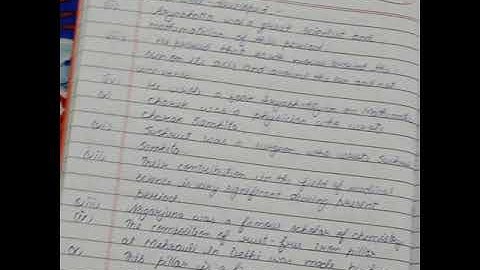 (ii) Aryabhatta was a great scientist and
mathematician of this period.
(iii) He proved that earth moves around the
sun on its axis and around the sun and not
(iv) He wrote a book Aryabhatiyam on Mathematics
(v) Charak was a physician who wrote
Charak Samhita.
(vi) Sushrut was a surgeon who wrote Sushrut
Samhita.
(vii) Their contribution in the field of medical
science is very significant during present
period.
(viii) Nagarjuna was a famous scholar of chemistry
(ix) The composition of rust-free iron pillar
at Mehrauli in Delhi was made by
(x) This pillar is a